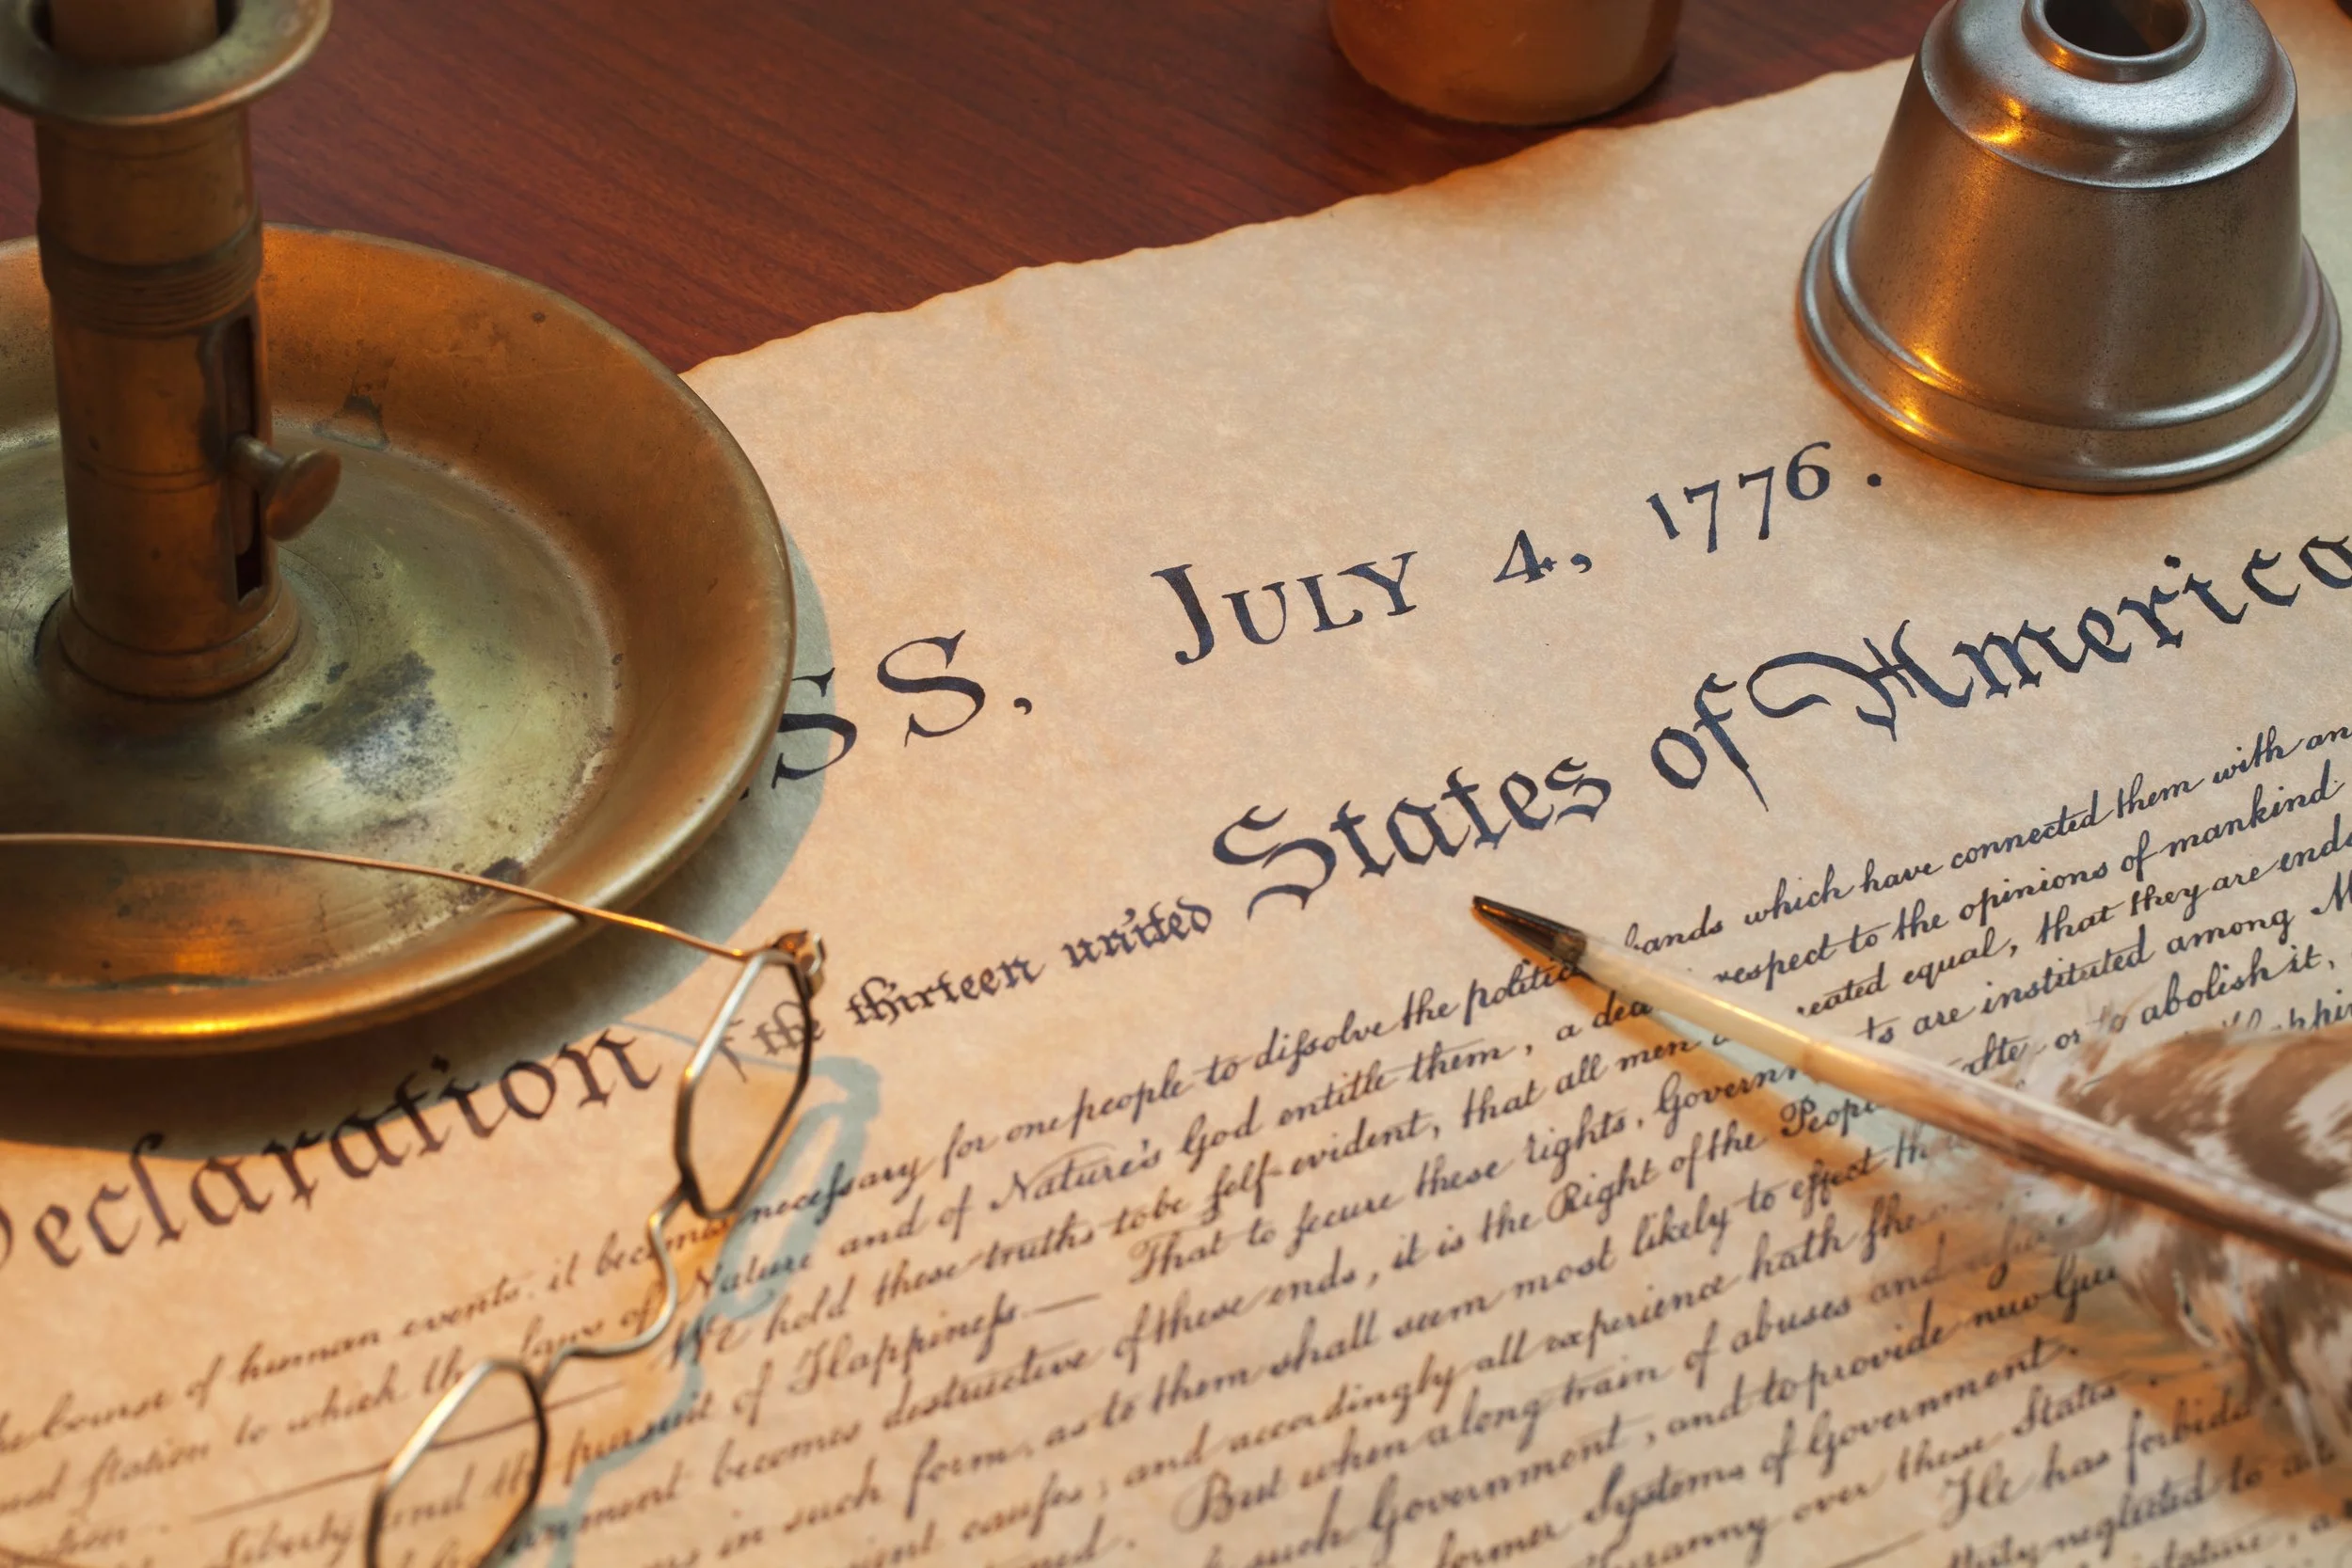 SS. JULY 4, 1776.
eclaration f the thirteen united States of America
he Course of human events, it becomes necessary for one people to dissolve the politica bands which have connected them with an
station to which the laws of Nature and of Nature's God entitle them, a dec respect to the opinions of mankind
We hold these truths to be self-evident, that all men reated equal, that they are endo
Liberty and the pursuit of Happiness. — That to secure these rights, Governm ts are instituted among M
rnment becomes destructive of these ends, it is the Right of the People alter or to abolish it,
in such form, as to them shall seem most likely to effect th
causes; and accordingly all experience hath she
But when a long train of abuses and usur
such Government, and to provide new Gua
former Systems of Government.
ranny over these States.
He has forbidd
neglected to